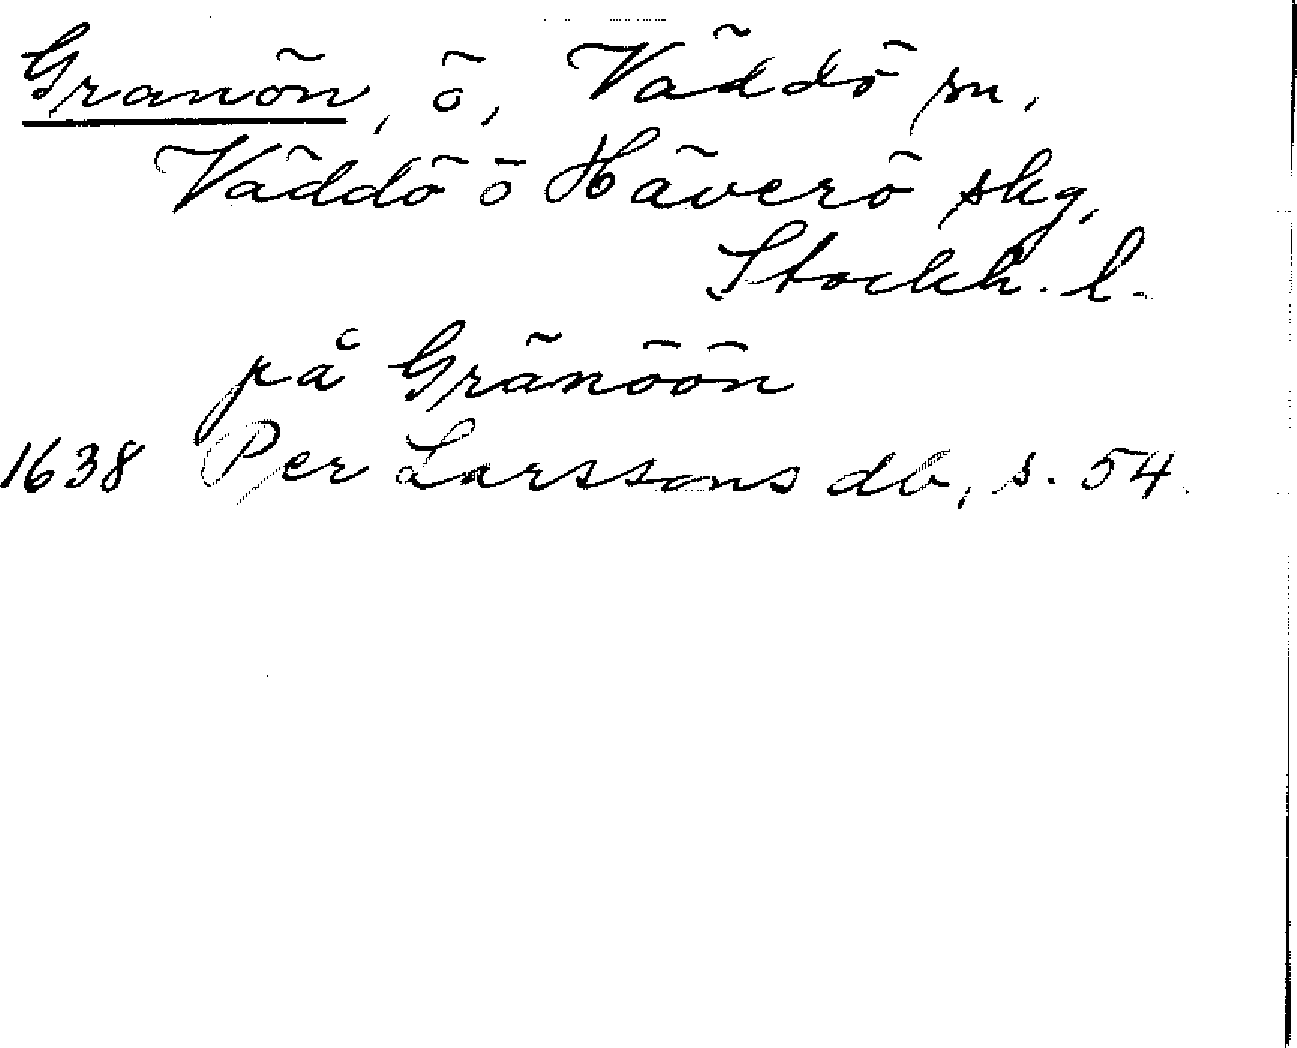 Granön, ö, Väddö sn,
Väddö ö Häverö skg,
Stockh. l.
på Gränöön
1638 Per Larssons db, s. 54.